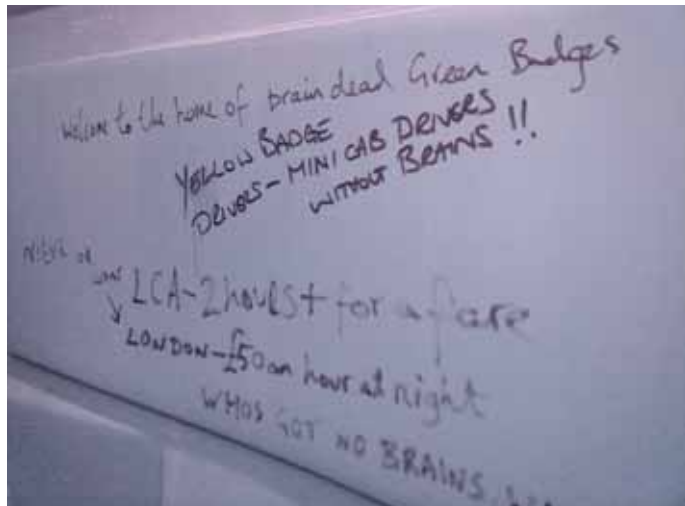 Welcome to the home of brain dead Green Badges
YELLOW BADGE
DRIVERS - MINI CAB DRIVERS
WITHOUT BRAINS !!
LCA - 2 hours + for a fare
LONDON - £50 an hour at night
WHOS GOT NO BRAINS